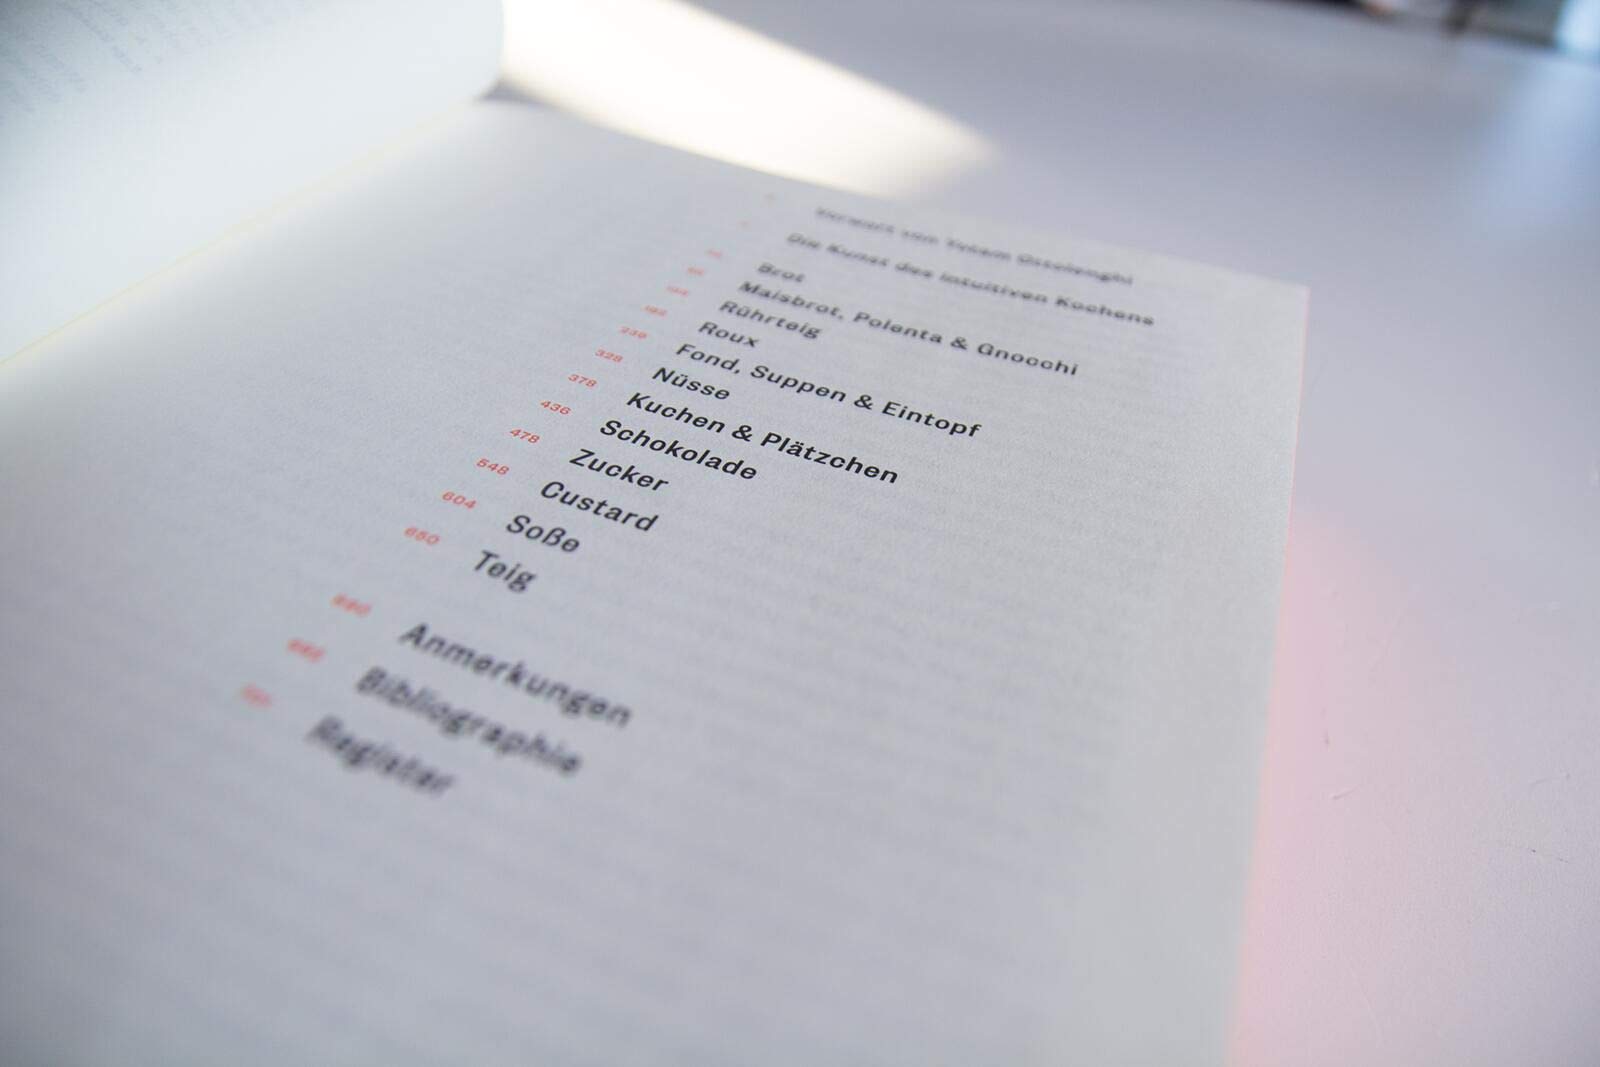 Vorwort von Yotam Ottolenghi
Die Kunst des intuitiven Kochens
Brot
Maisbrot, Polenta & Gnocchi
Rührteig
Roux
239 Fond, Suppen & Eintopf
328 Nüsse
378 Kuchen & Plätzchen
436 Schokolade
478 Zucker
548 Custard
604 Soße
650 Teig
Anmerkungen
Bibliographie
Register